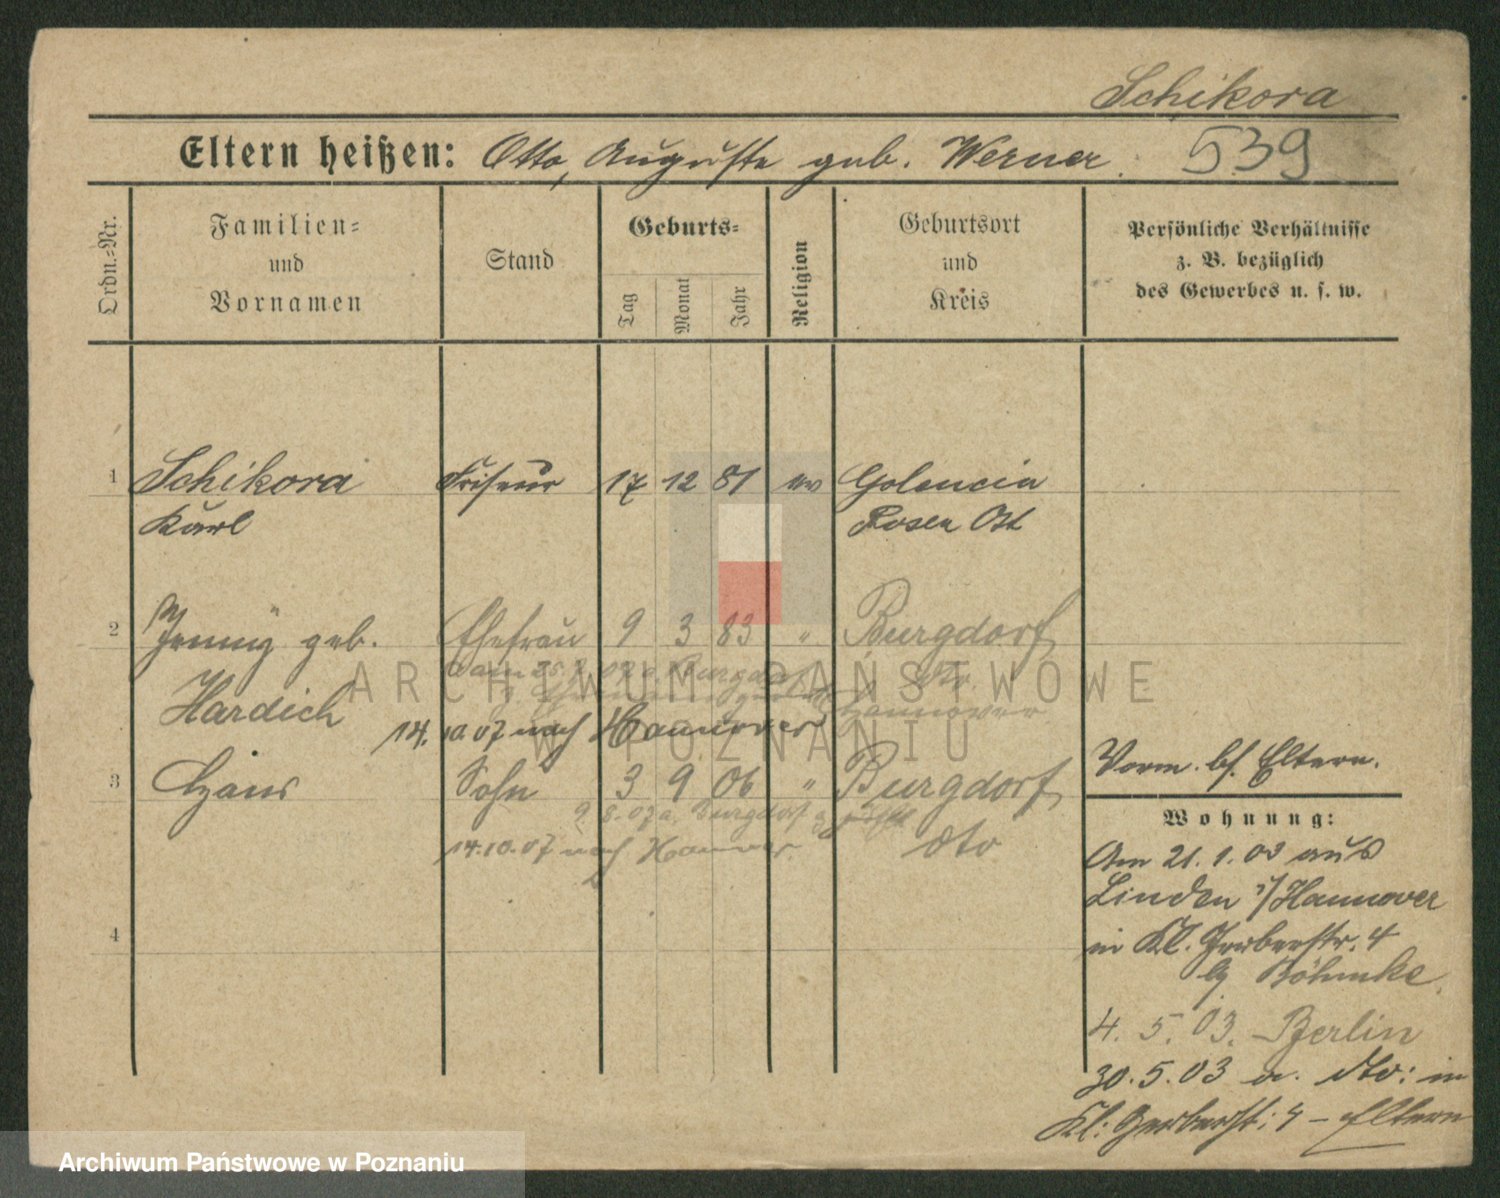 Schikora
Eltern heißen: Otto, Auguste geb. Werner. 539
Ordn.-Nr.
Familien-
und
Vornamen
Stand
Geburts-
Tag
Monat
Jahr
Religion
Geburtsort
und
Kreis
Persönliche Verhältnisse
z. B. bezüglich
des Gewerbes u. s. w.
1 Schikora Friseur 17 12 81 ev Golencin
Karl Posen Ost
2 Jenny geb. Ehefrau 9 3 83 " Burgdorf
Hardich
Hannover
14.10.07 nach Hannover
3 Hans Sohn 3 9 06 " Burgdorf
9.8.07 a. Burgdorf
dto
14.10.07 nach Hannover
4
Vorm. bf. Eltern.
Wohnung:
Am 21.1.03 aus
Linden i/Hannover
in Kl. Gerberstr. 4
b/ Böhmke.
4.5.03. Berlin
30.5.03 a. dto: in
Kl: Gerberst: 4 – Eltern
ARCHIWUM PAŃSTWOWE
W POZNANIU
Archiwum Państwowe w Poznaniu